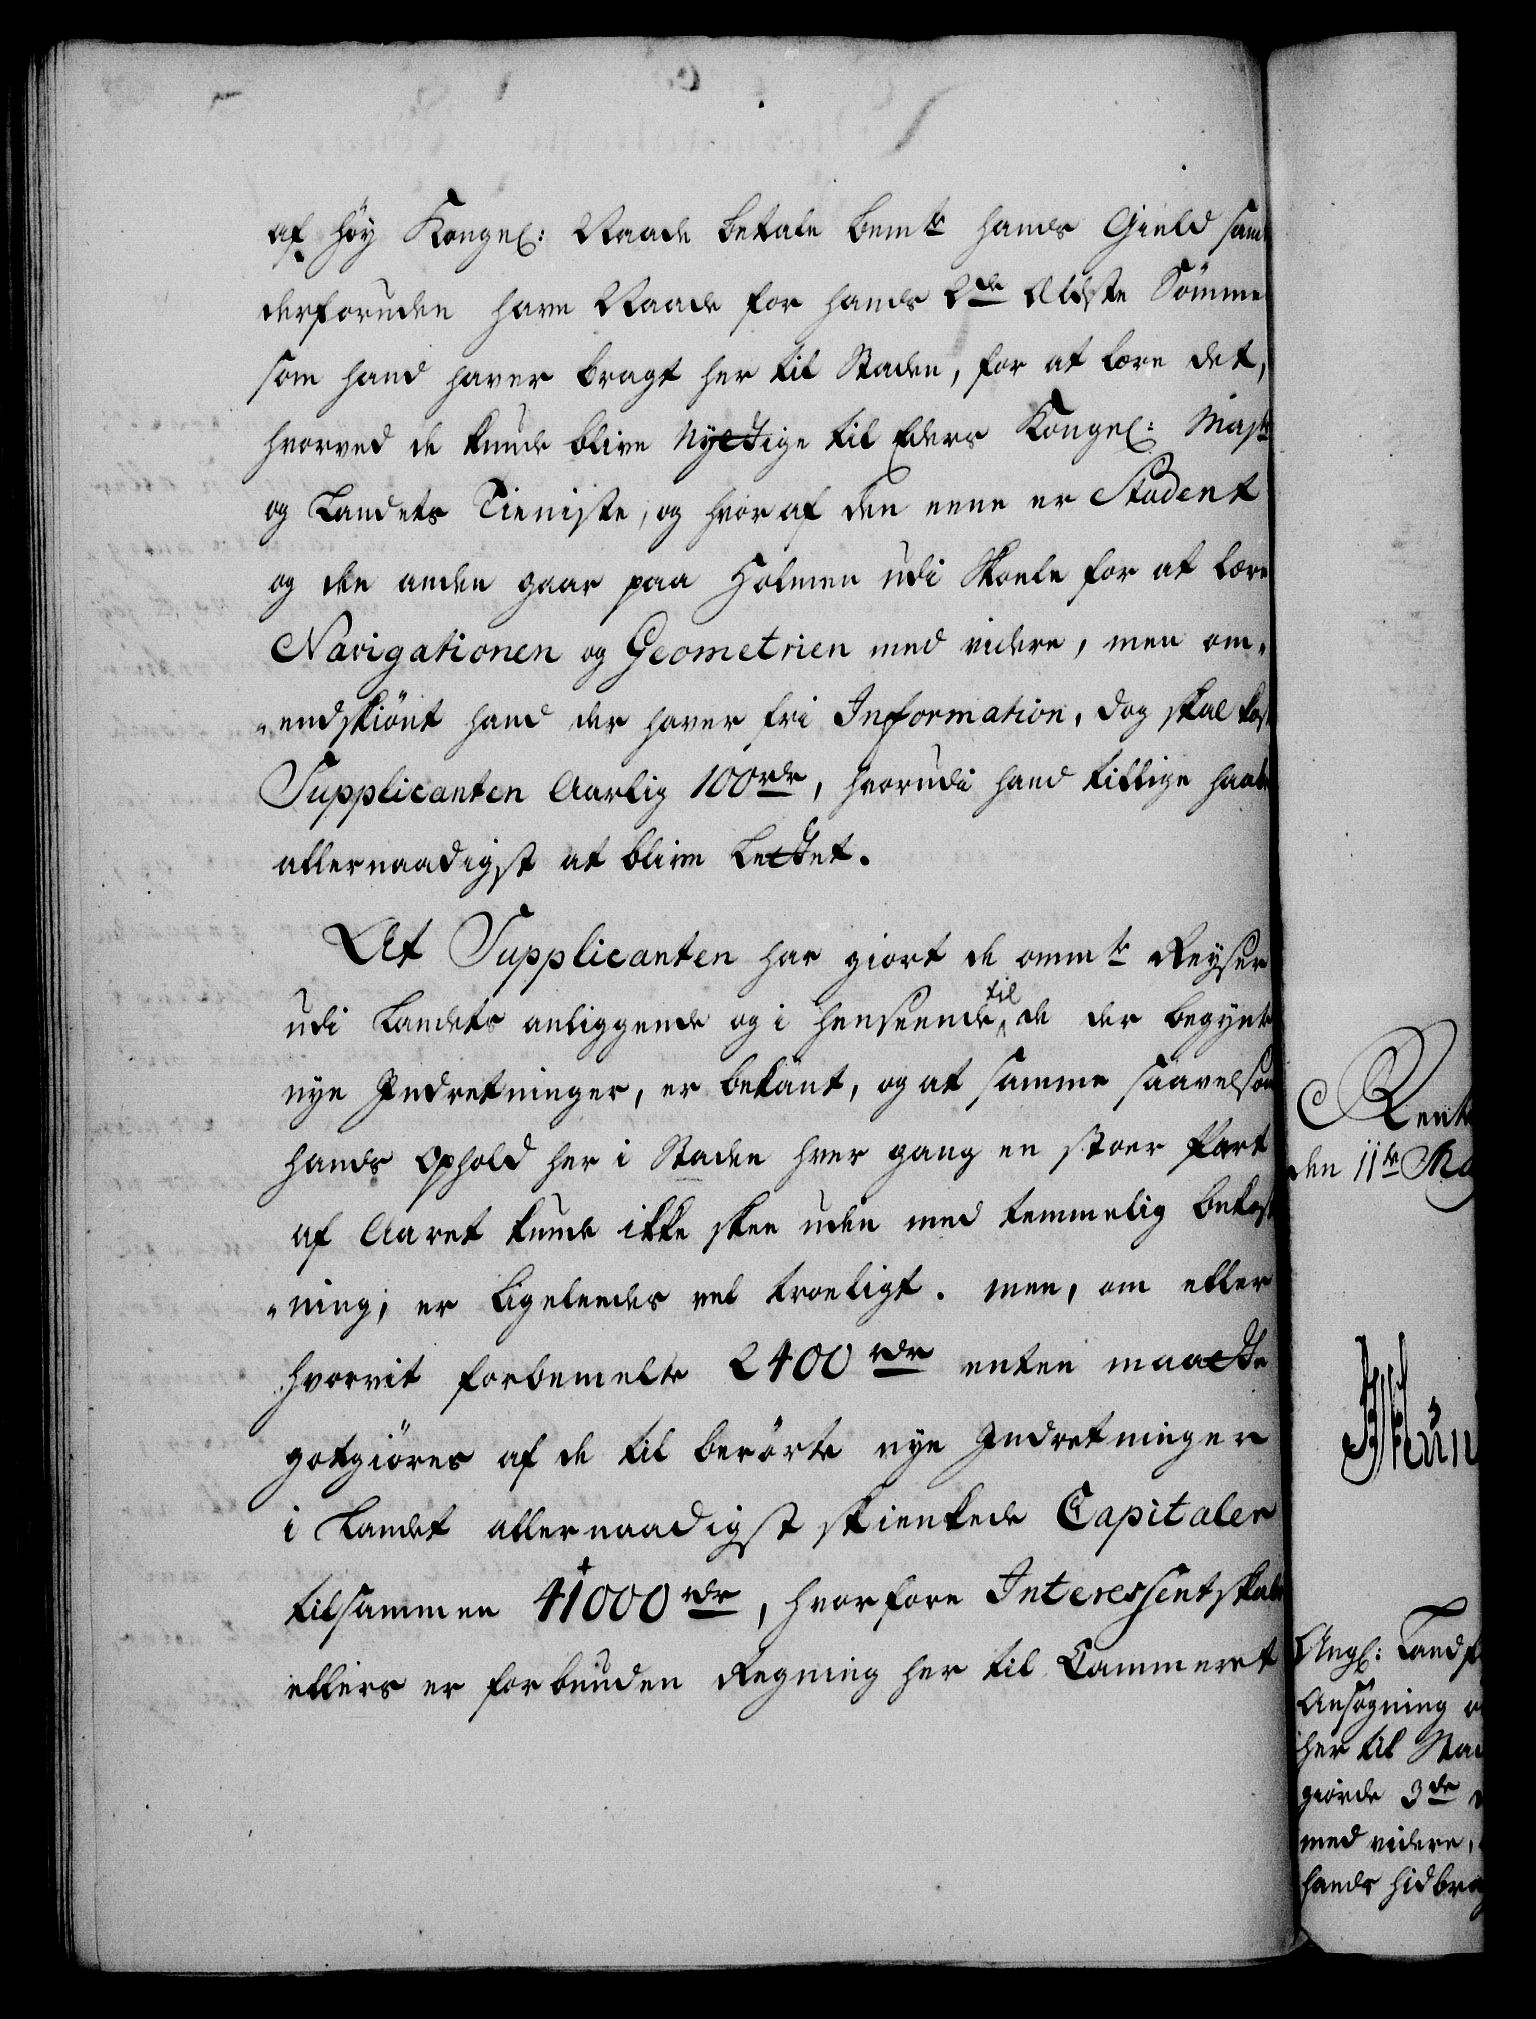 af høy Kongel: Naade betale bem.te hands Gield samt
derforuden have Naade for hands 2de Ældste Sønner
som hand haver bragt her til Staden, for at lære det,
hvorved de kunde blive Nyttige til Eders Kongel: Mayts
og Landets Tieniste, og hvoraf den eene er Student
og den anden gaar paa Holmen udi Skoele for at lære
Navigationen og Geometrien med videre, men om„
„endskiønt hand der haver fri Information, dog skal kos
Supplicanten Aarlig 100 rdr, hvorudi hand tillige haaber
allernaadigst at blive Lettet.
At Supplicanten har giort de omm.te Reyser
udi Landets anliggende og i henseende til de der begynte
nye Indretninger, er bekant, og at samme saavelsom
hands Ophold her i Staden hver gang en stoer Part
af Aaret kunde ikke skee uden med temmelig bekost
„ning, er ligeledes vel troeligt. men, om eller
hvorvit forbemelte 2400 rdr enten maatte
gotgiøres af de til berørte nye Indretninger
i Landet allernaadigst skienkede Capitaler
tilsammen 41000 rdr, hvorfore Interessentskabet
ellers er forbunden Regning her til Cammeret
Rente
den 11te Ma
Angl: Landf
Ansøgning o
her til Sta
giorde 3de
med videre,
hands hidbrag